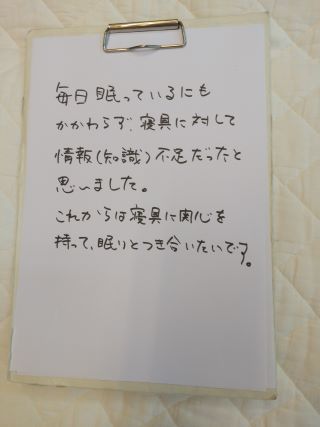 毎日眠っているにも
かかわらず、寝具に対して
情報(知識)不足だったと
思いました。
これからは寝具に関心を
持って、眠りとつき合いたいです。